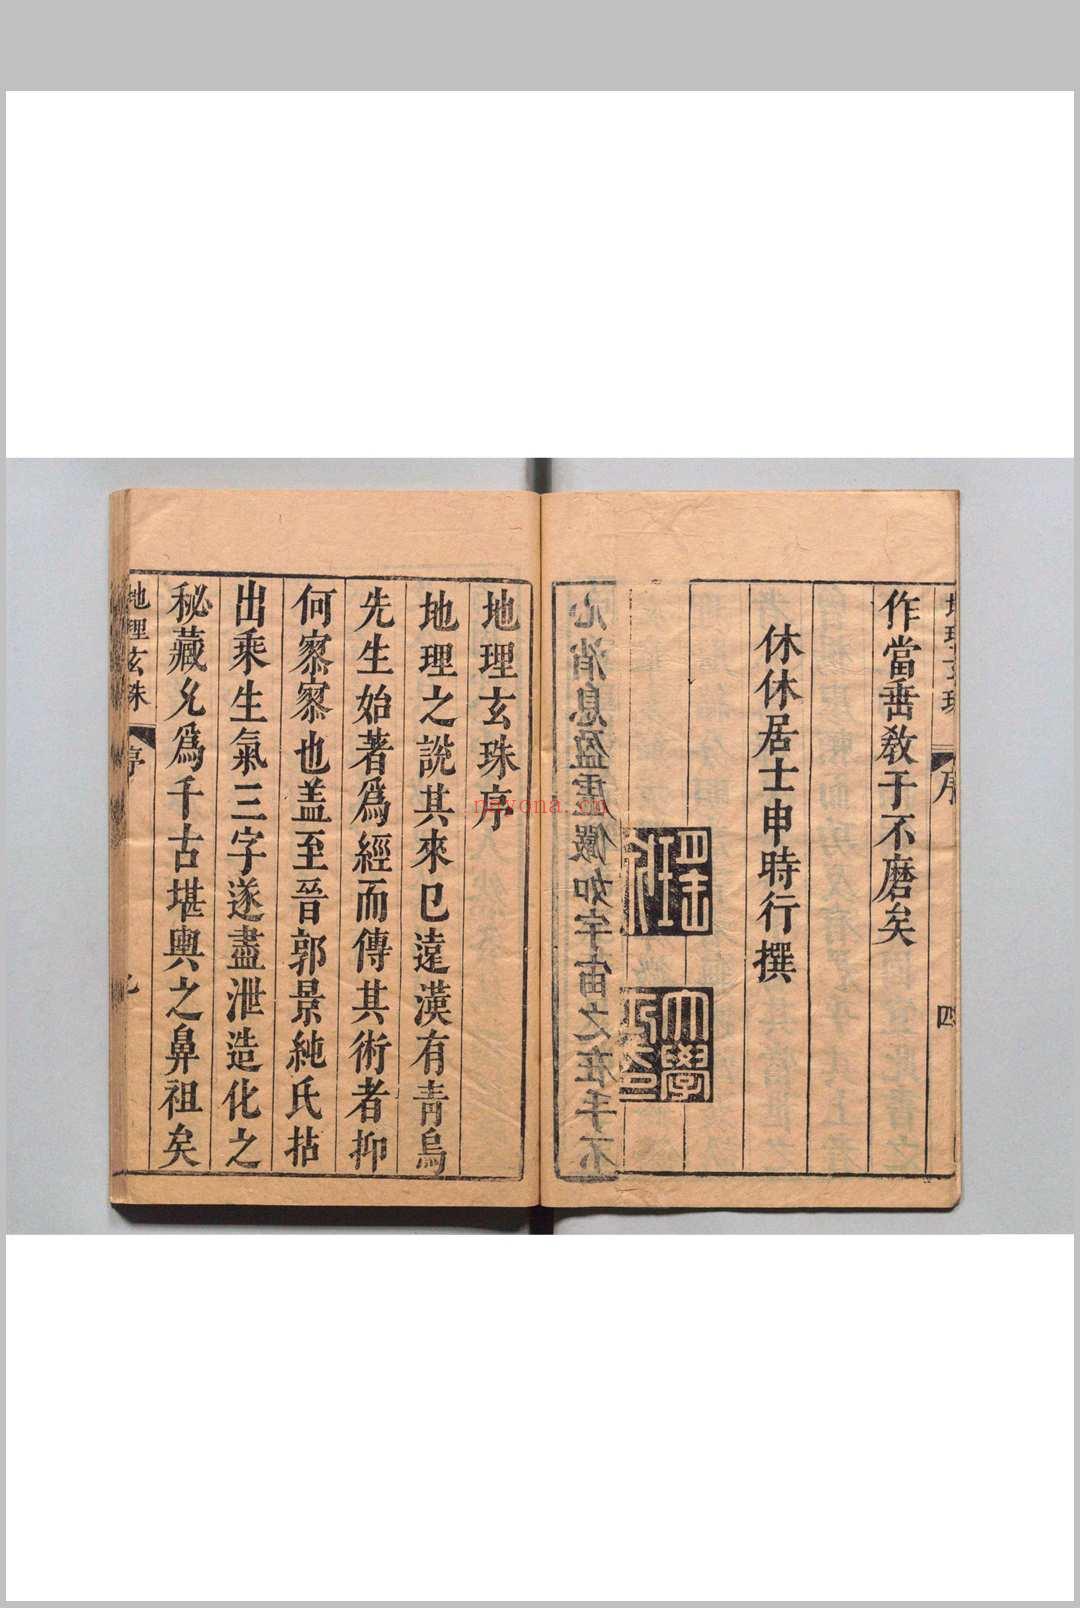 作當垂教于不磨矣
休休居士申時行撰
大學
心消息盈虛儼如宇宙之在手不
地理玄珠序
地理之說其來已遠漢有靑烏
先生始著爲經而傳其術者抑
何察察也盖至晉郭景純氏拈
出乘生氣三字遂盡泄造化之
秘藏允爲千古堪輿之鼻祖矣
地理玄珠
序
四
nayona.cn